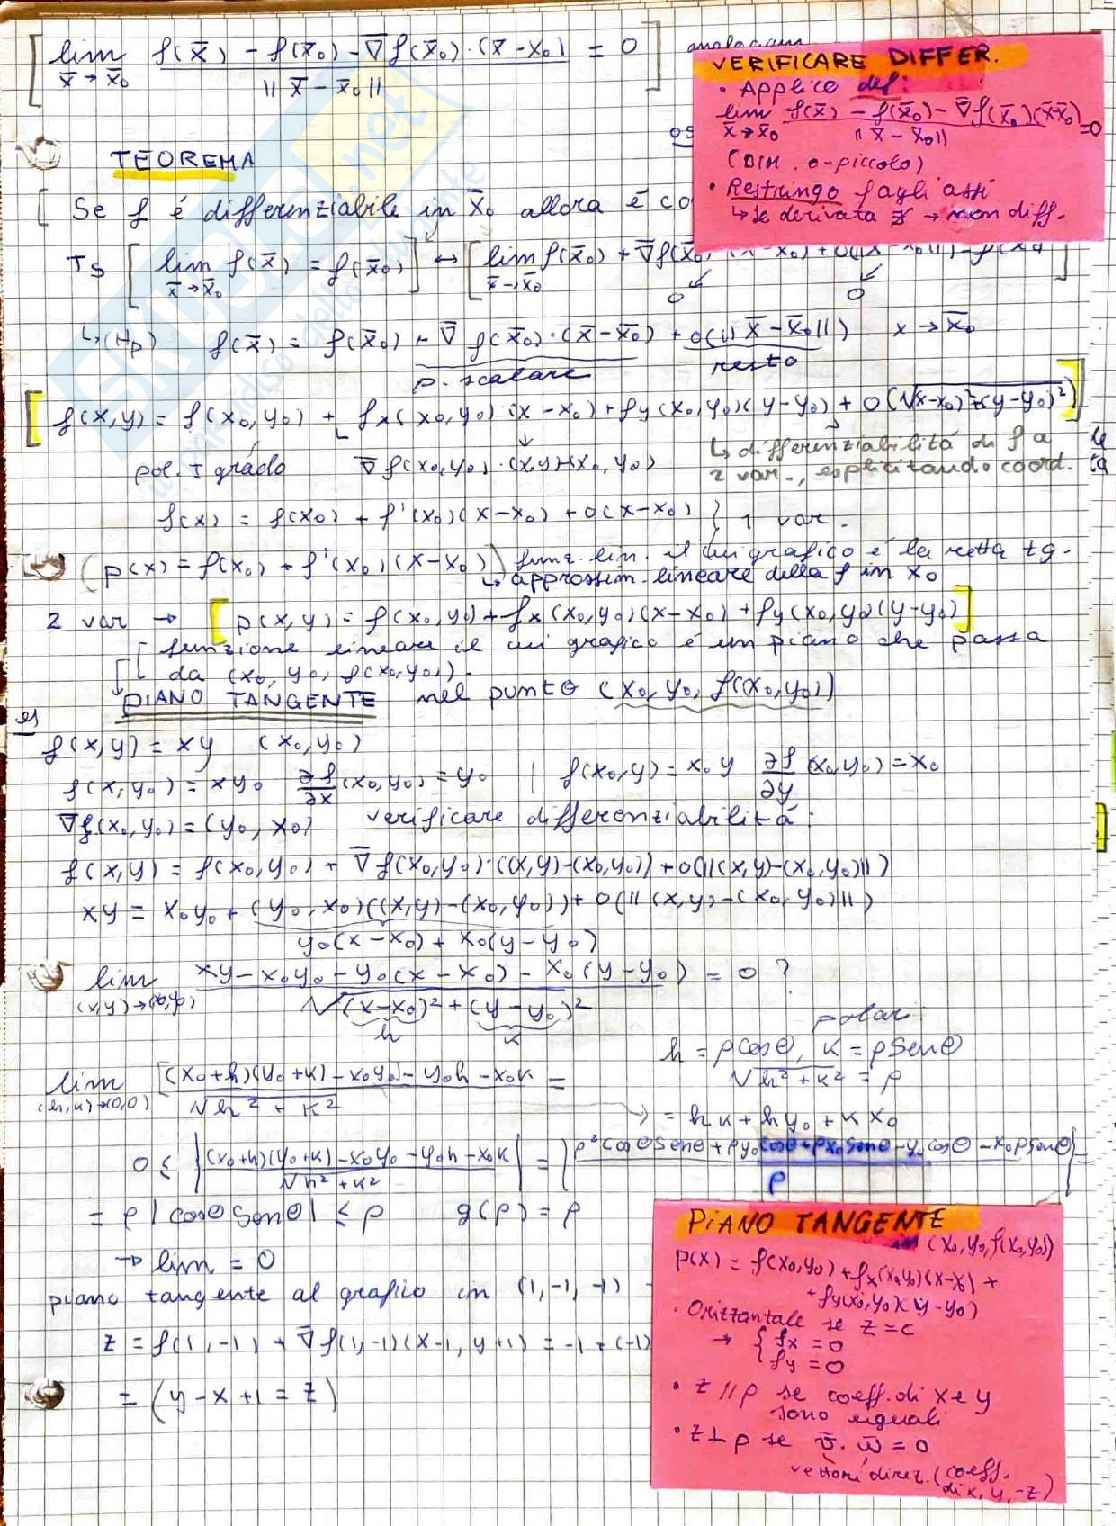 [ lim x̄→x̄₀ (f(x̄) - f(x̄₀) - ∇̄f(x̄₀)·(x̄-x₀)) / ||x̄-x̄₀|| = 0 ]
VERIFICARE DIFFER.
• Applico def:
lim x̄→x̄₀ (f(x̄) - f(x̄₀) - ∇̄f(x̄₀)(x̄-x̄₀)) / ||x̄-x̄₀|| = 0
(DIM. o-piccolo)
• Restringo f agli assi
↳ se derivata ∄ → non diff.
TEOREMA
[ Se f é differenziabile in x̄₀ allora é co
TS [ lim x̄→x̄₀ f(x̄) = f(x̄₀) ] ↔ [ lim x̄→x̄₀ f(x̄₀) + ∇̄f(x̄₀)
0 0
↳(Hp) f(x̄) = f(x̄₀) + ∇̄f(x̄₀)·(x̄-x̄₀) + o(||x̄-x̄₀||) x→x̄₀
p. scalare resto
[ f(x,y) = f(x₀,y₀) + fx(x₀,y₀)(x-x₀) + fy(x₀,y₀)(y-y₀) + o(√(x-x₀)²+(y-y₀)²) ]
pol. I grado ∇̄f(x₀,y₀)·(x,y)-(x₀,y₀) ↳ differenziabilitá di f a
2 var., esplicitando coord.
f(x) = f(x₀) + f'(x₀)(x-x₀) + o(x-x₀) } 1 var.
(p(x) = f(x₀) + f'(x₀)(x-x₀)) funz. lin. il cui grafico é la retta tg.
↳ approssim. lineare della f in x₀
2 var → [ p(x,y) = f(x₀,y₀) + fx(x₀,y₀)(x-x₀) + fy(x₀,y₀)(y-y₀) ]
[ funzione lineare il cui grafico é un piano che passa
da (x₀, y₀, f(x₀,y₀))
PIANO TANGENTE nel punto (x₀,y₀, f(x₀,y₀))
es
f(x,y) = xy (x₀,y₀)
f(x,y₀) = xy₀ ∂f/∂x (x₀,y₀) = y₀ | f(x₀,y) = x₀y ∂f/∂y (x₀,y₀) = x₀
∇̄f(x₀,y₀) = (y₀, x₀) verificare differenziabilitá:
f(x,y) = f(x₀,y₀) + ∇̄f(x₀,y₀)·((x,y)-(x₀,y₀)) + o(||(x,y)-(x₀,y₀)||)
xy = x₀y₀ + (y₀,x₀)((x,y)-(x₀,y₀)) + o(||(x,y)-(x₀,y₀)||)
y₀(x-x₀) + x₀(y-y₀)
lim (x,y)→(x₀,y₀) (xy - x₀y₀ - y₀(x-x₀) - x₀(y-y₀)) / √(x-x₀)²+(y-y₀)² = 0 ?
h k
polari
h = ρcosθ, k = ρsenθ
√h²+k² = ρ
lim (h,k)→(0,0) [(x₀+h)(y₀+k) - x₀y₀ - y₀h - x₀k / √h²+k² =
→ = hk + hy₀ + kx₀
0 ≤ |(x₀+h)(y₀+k) - x₀y₀ - y₀h - x₀k / √h²+k²| = |ρ²cosθsenθ + ρy₀cosθ + ρx₀senθ - y₀cosθ - x₀ρsenθ / ρ| =
= ρ|cosθsenθ| ≤ ρ g(ρ) = ρ
→ lim = 0
piano tangente al grafico in (1,-1,-1)
z = f(1,-1) + ∇̄f(1,-1)(x-1, y+1) = -1 + (-1)
= (y - x + 1 = z)
PIANO TANGENTE
in (x₀,y₀,f(x₀,y₀))
p(x) = f(x₀,y₀) + fx(x₀,y₀)(x-x₀) +
+ fy(x₀,y₀)(y-y₀)
• Orizzontale se z = c
→ { fx = 0
fy = 0
• z // p se coeff. di x e y
sono uguali
• z ⊥ p se v̄·w̄ = 0
vettori direz. (coeff.
di x, y, -z)